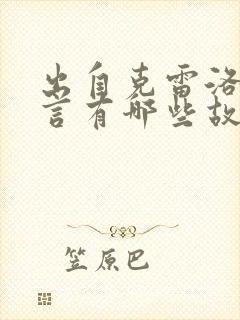 出自克雷洛
言有哪些故
笠原巴